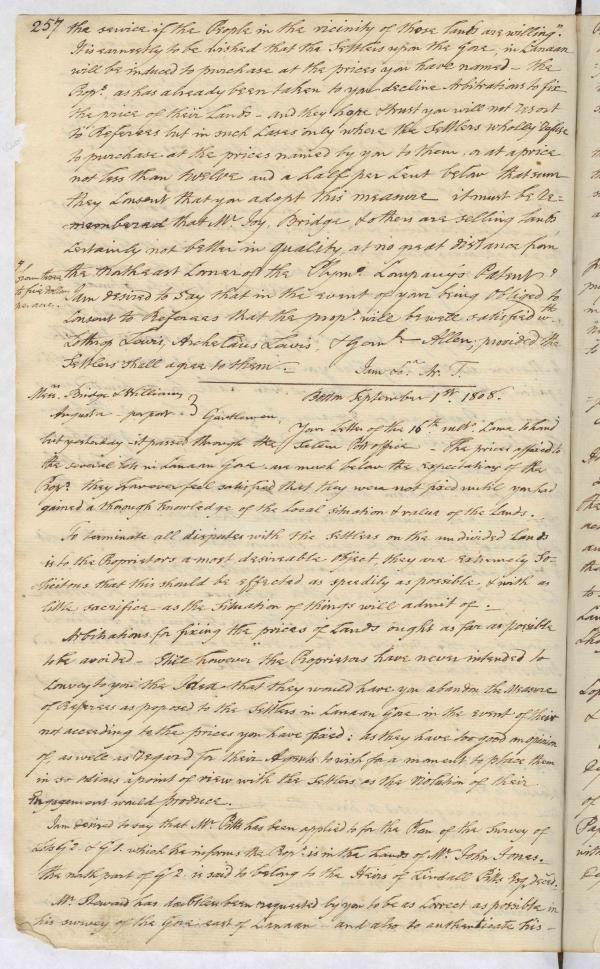 257 the service if the People in the vicinity of those lands are willing.
It is earnestly to be wished that the Settlers upon the Gore, in Canaan
will be induced to purchase at the prices you have named – the
Prop.rs as has already been taken to you decline Arbitrations to fix
the price of their Lands – and they hope & trust you will not resort
to Referees but in such Cases only where the Settlers wholly refuse
to purchase at the prices named by you to them, or at a price
not less than twelve and a half per Cent below that sum
they Consent that you adopt this measure it must be re=
membered that Mr. Joy, Bridge & others are selling lands
Certainly not better in quality, at no great distance from
the North east Corner of the Plym.o Company's Patent
from three
to five dollars
per acre.
I am desired to say that in the event of your being Obliged to
Consent to Referees that the prop.rs will be well satisfied wth
Lothrop Lewis, Archelaus Lewis, & Allen, provided the
Settlers shall agree to them. I am Sr. Ar. T.
Mess.rs Bridge & Williams
Boston September 1st. 1808.
Augusta – per post } Gentlemen,
Your Letter of the 16th ult.o Came to hand
but yesterday – it passed through the Salem Post office – The prices affixed to
the several lots in Canaan Gore are much below the expectations of the
Prop.rs they however feel satisfied that they were not fixed until you had
gained a thorough knowledge of the local situation & value of the Lands.
To terminate all disputes with the Settlers on the undivided Lands
is to the Proprietors a most desireable object, they are extremely So-
licitous that this should be effected as speedily as possible & with as
little sacrifice as the situation of things will admit of –
Arbitrations for fixing the prices of Lands ought as far as possible
to be avoided – Still however the Proprietors have never intended to
Convey to you the Idea that they would have you abandon the Measure
of Referees as proposed to the Settlers in Canaan Gore in the event of their
not acceeding to the prices you have fixed: as they have too good an opinion
of, as well as regard for their Agents to wish for a moment to place them
in so odious a point of view with the Settlers as the violation of their
Engagement would produce.
I am desired to say that Mr. Pitts has been applied to for the Plan of the Survey of
Lots G 2. & G 1. which he informs the Prop.rs is in the hands of Mr. John Jones.
The north part of G 2 is said to belong to the Heirs of Lindall Pitts Esq. Dec.d.
Mr. Steward has doubtless been requested by you to be as Correct as possible in
his survey of the Gore east of Canaan – and also to authenticate his –